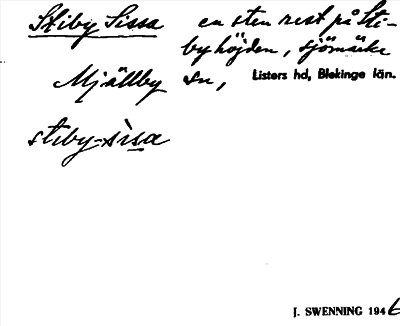 Stiby Sissa en sten rest på Sti-
byhöjden, sjömärke
Mjällby sn, Listers hd, Blekinge län.
stiby-sìsa
J. SWENNING 1946